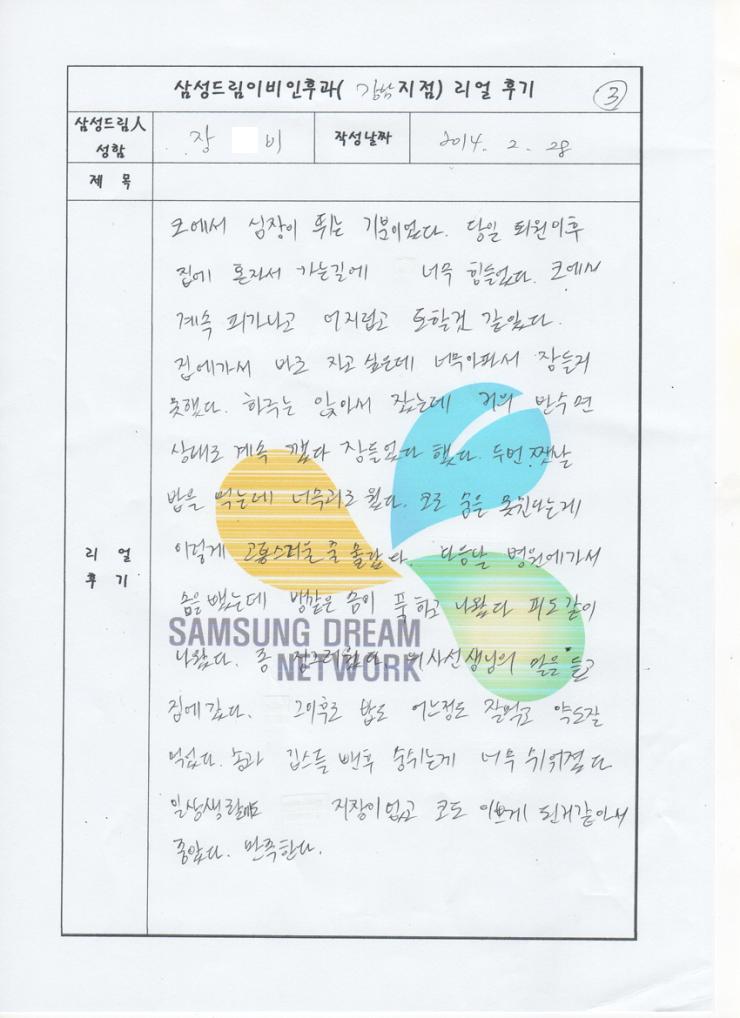 삼성드림이비인후과( 강남 지점) 리얼 후기 ③
삼성드림人 성함 장 비 작성날짜 2014. 2. 28
제 목
리 얼 후 기
코에서 심장이 뛰는 기분이었다. 당일 퇴원이후
집에 혼자서 가는길에 너무 힘들었다. 코에서
계속 피가나고 어지럽고 토할것 같았다.
집에가서 바로 자고 싶은데 너무아파서 잠들지
못했다. 하루는 앉아서 잤는데 거의 반수면
상태로 계속 깼다 잠들었다 했다. 두번 쨋날
밥을 먹는데 너무괴로 웠다. 코로 숨을 못쉰다는게
이렇게 고통스러울 줄 몰랐 다. 다음날 병원에가서
솜을 뺐는데 뱀같은 솜이 푹 하고 나왔다 피도같이
나왔다. 좀 의사선생님의 말을 듣고
집에갔다. 그이후로 밥도 어느정도 잘먹고 약도잘
먹었다. 솜과 깁스를 뺀후 숨쉬는게 너무 쉬워졌다
일상생활에도 지장이없고 코도 이쁘게 된거같아서
좋았다. 만족한다.
SAMSUNG DREAM
NETWORK